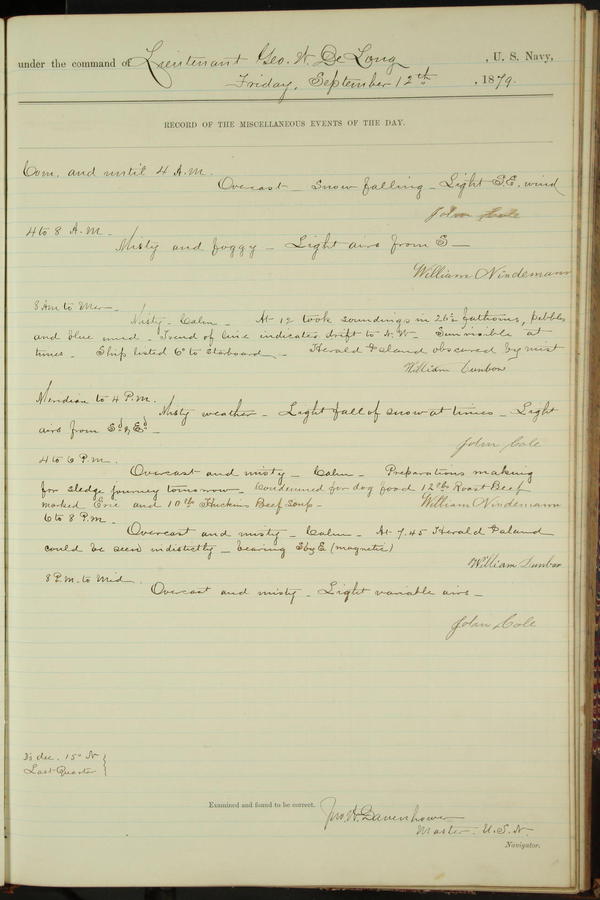 under the command of Lieutenant Geo. W. De Long, U. S. Navy,
Friday, September 12th, 1879.
RECORD OF THE MISCELLANEOUS EVENTS OF THE DAY.
Com. and until 4 A.M.
Overcast - Snow falling - Light S.E. wind
John Cole
4 to 8 A.M.
Misty and foggy - Light airs from E -
William Nindemann
8 AM to Mer -
Misty - Calm - At 12 took soundings in 26½ fathoms, pebbles
and blue mud - Trend of line indicates drift to N.W - Sun visible at
times - Ship listed 6° to starboard - Herald Island obscured by mist
William Dunbar
Meridian to 4 P.M.
Misty weather - Light fall of snow at times - Light
airs from Sd & Ed -
John Cole
4 to 6 P.M.
Overcast and misty - Calm - Preparations making
for sledge journey tomorrow - Condemned for dog food 12 lbs Roast Beef
marked Erie and 10 lbs Huckins Beef Soup -
William Nindemann
6 to 8 P.M.
Overcast and misty - Calm - At 7.45 Herald Island
could be seen indistictly - bearing S by E (magnetic)
William Dunbar
8 P.M. to Mid.
Overcast and misty - Light variable airs -
John Cole
dec. 15° N
Last Quarter
Examined and found to be correct.
Jno. W. Danenhower
Master - U.S.N.
Navigator.